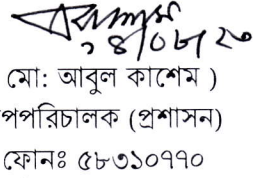 ১৪/০৮/২৩
মো: আবুল কাশেম )
পপরিচালক (প্রশাসন)
ফোনঃ ৫৮৩১০৭৭০